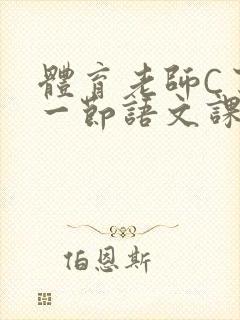 體育老師C
一節語文課
伯恩斯